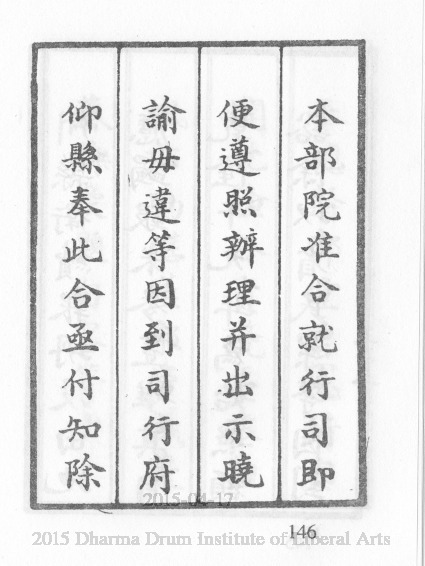 本部院准合就行司即
便遵照辦理并出示曉
諭毋違等因到司行府
仰縣奉此合亟付知除
2015-04-17
146
2015 Dharma Drum Institute of Liberal Arts